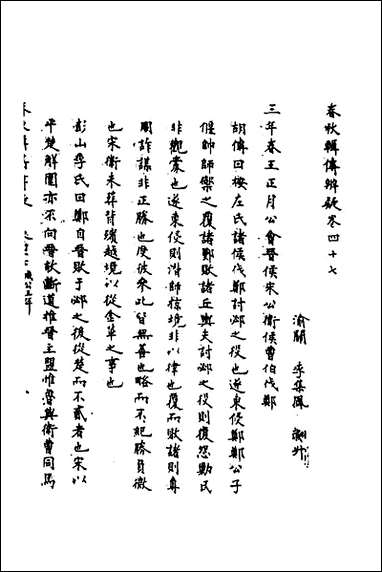 春秋輯傳辨疑卷四十七
渝關 李集鳳 翽升
三年春王正月公會晉侯宋公衛侯曹伯伐鄭
胡傳曰按左氏諸侯伐鄭討邲之役也遂東侵鄭鄭公子
偃帥師禦之覆諸鄤敗諸丘輿夫討邲之役則復怨勤民
非觀釁也遂東侵則潛師掠境非以律也覆而敗諸則專
用詐謀非正勝也度彼參此皆無善也略而不紀勝負微
也宋衛未葬背殯越境以從金革之事也
彭山季氏曰鄭自晉敗于邲之後從楚而不貳者也宋以
平楚解圍亦不向晉故斷道推晉主盟惟魯與衛曹同焉
春秋輯傳辨疑 卷四十七 成公三年